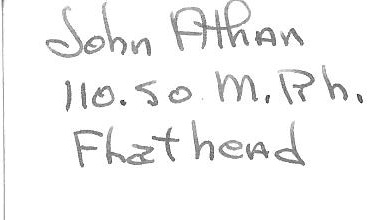 John Athan
110.50 M.P.h.
Flathead